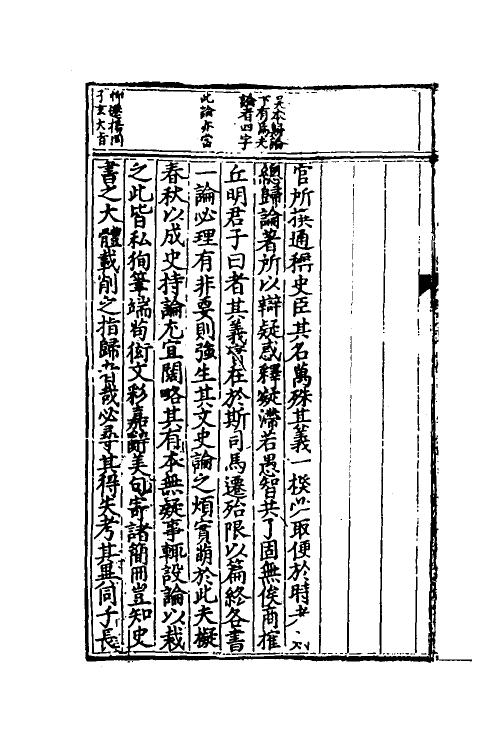 官所撰通稱史臣其名萬殊其義一揆必取便於時者
總歸論著所以辯疑惑釋凝滯若愚智共了固無俟商搉
丘明君子曰者其義實在於斯司馬遷殆限以篇終各書
一論必理有非要則強生其文史論之煩實萌於此夫擬
春秋以成史持論尤宜闊略其有本無疑事輒設論以裁
之此皆私徇筆端苟衒文彩嘉辭美句寄諸簡冊豈知史
書之大體載削之指歸者哉必尋其得失考其異同子長
下有爲夫
論者四字
此論亦當